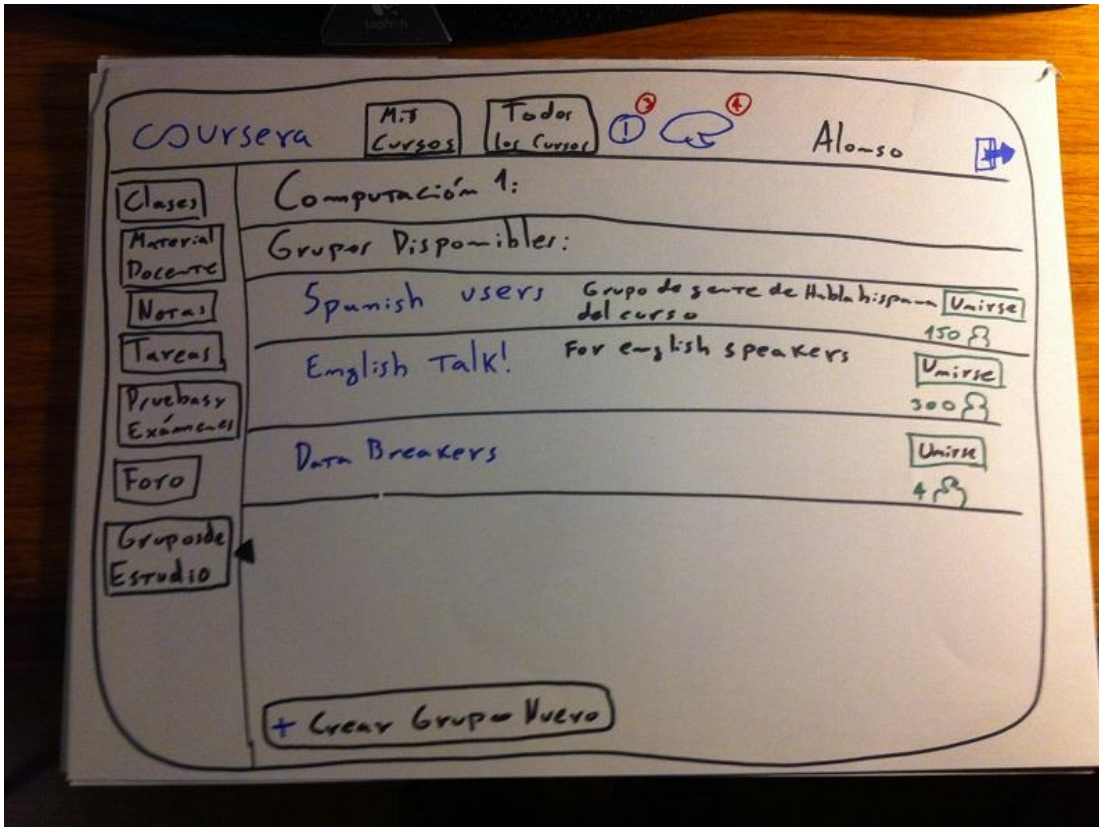 Logitech
coursera
Mis
Cursos
Todos
los Cursos
1
4
Alonso
Clases
Material
Docente
Notas
Tareas
Pruebas y
Exámenes
Foro
Grupos de
Estudio
Computación 1:
Grupos Disponibles:
Spanish users
Grupo de gente de Habla hispana
del curso
Unirse
150
English Talk!
For english speakers
Unirse
300
Data Breakers
Unirse
4
+ Crear Grupo Nuevo